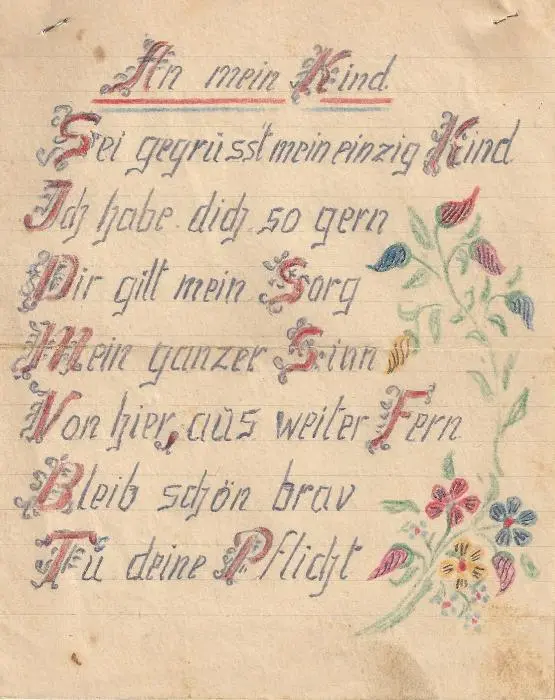 An mein Kind.
Sei gegrüsst mein einzig Kind
Ich habe dich so gern
Dir gilt mein Sorg
Mein ganzer Sinn
Von hier, aus weiter Fern
Bleib schön brav
Tu deine Pflicht